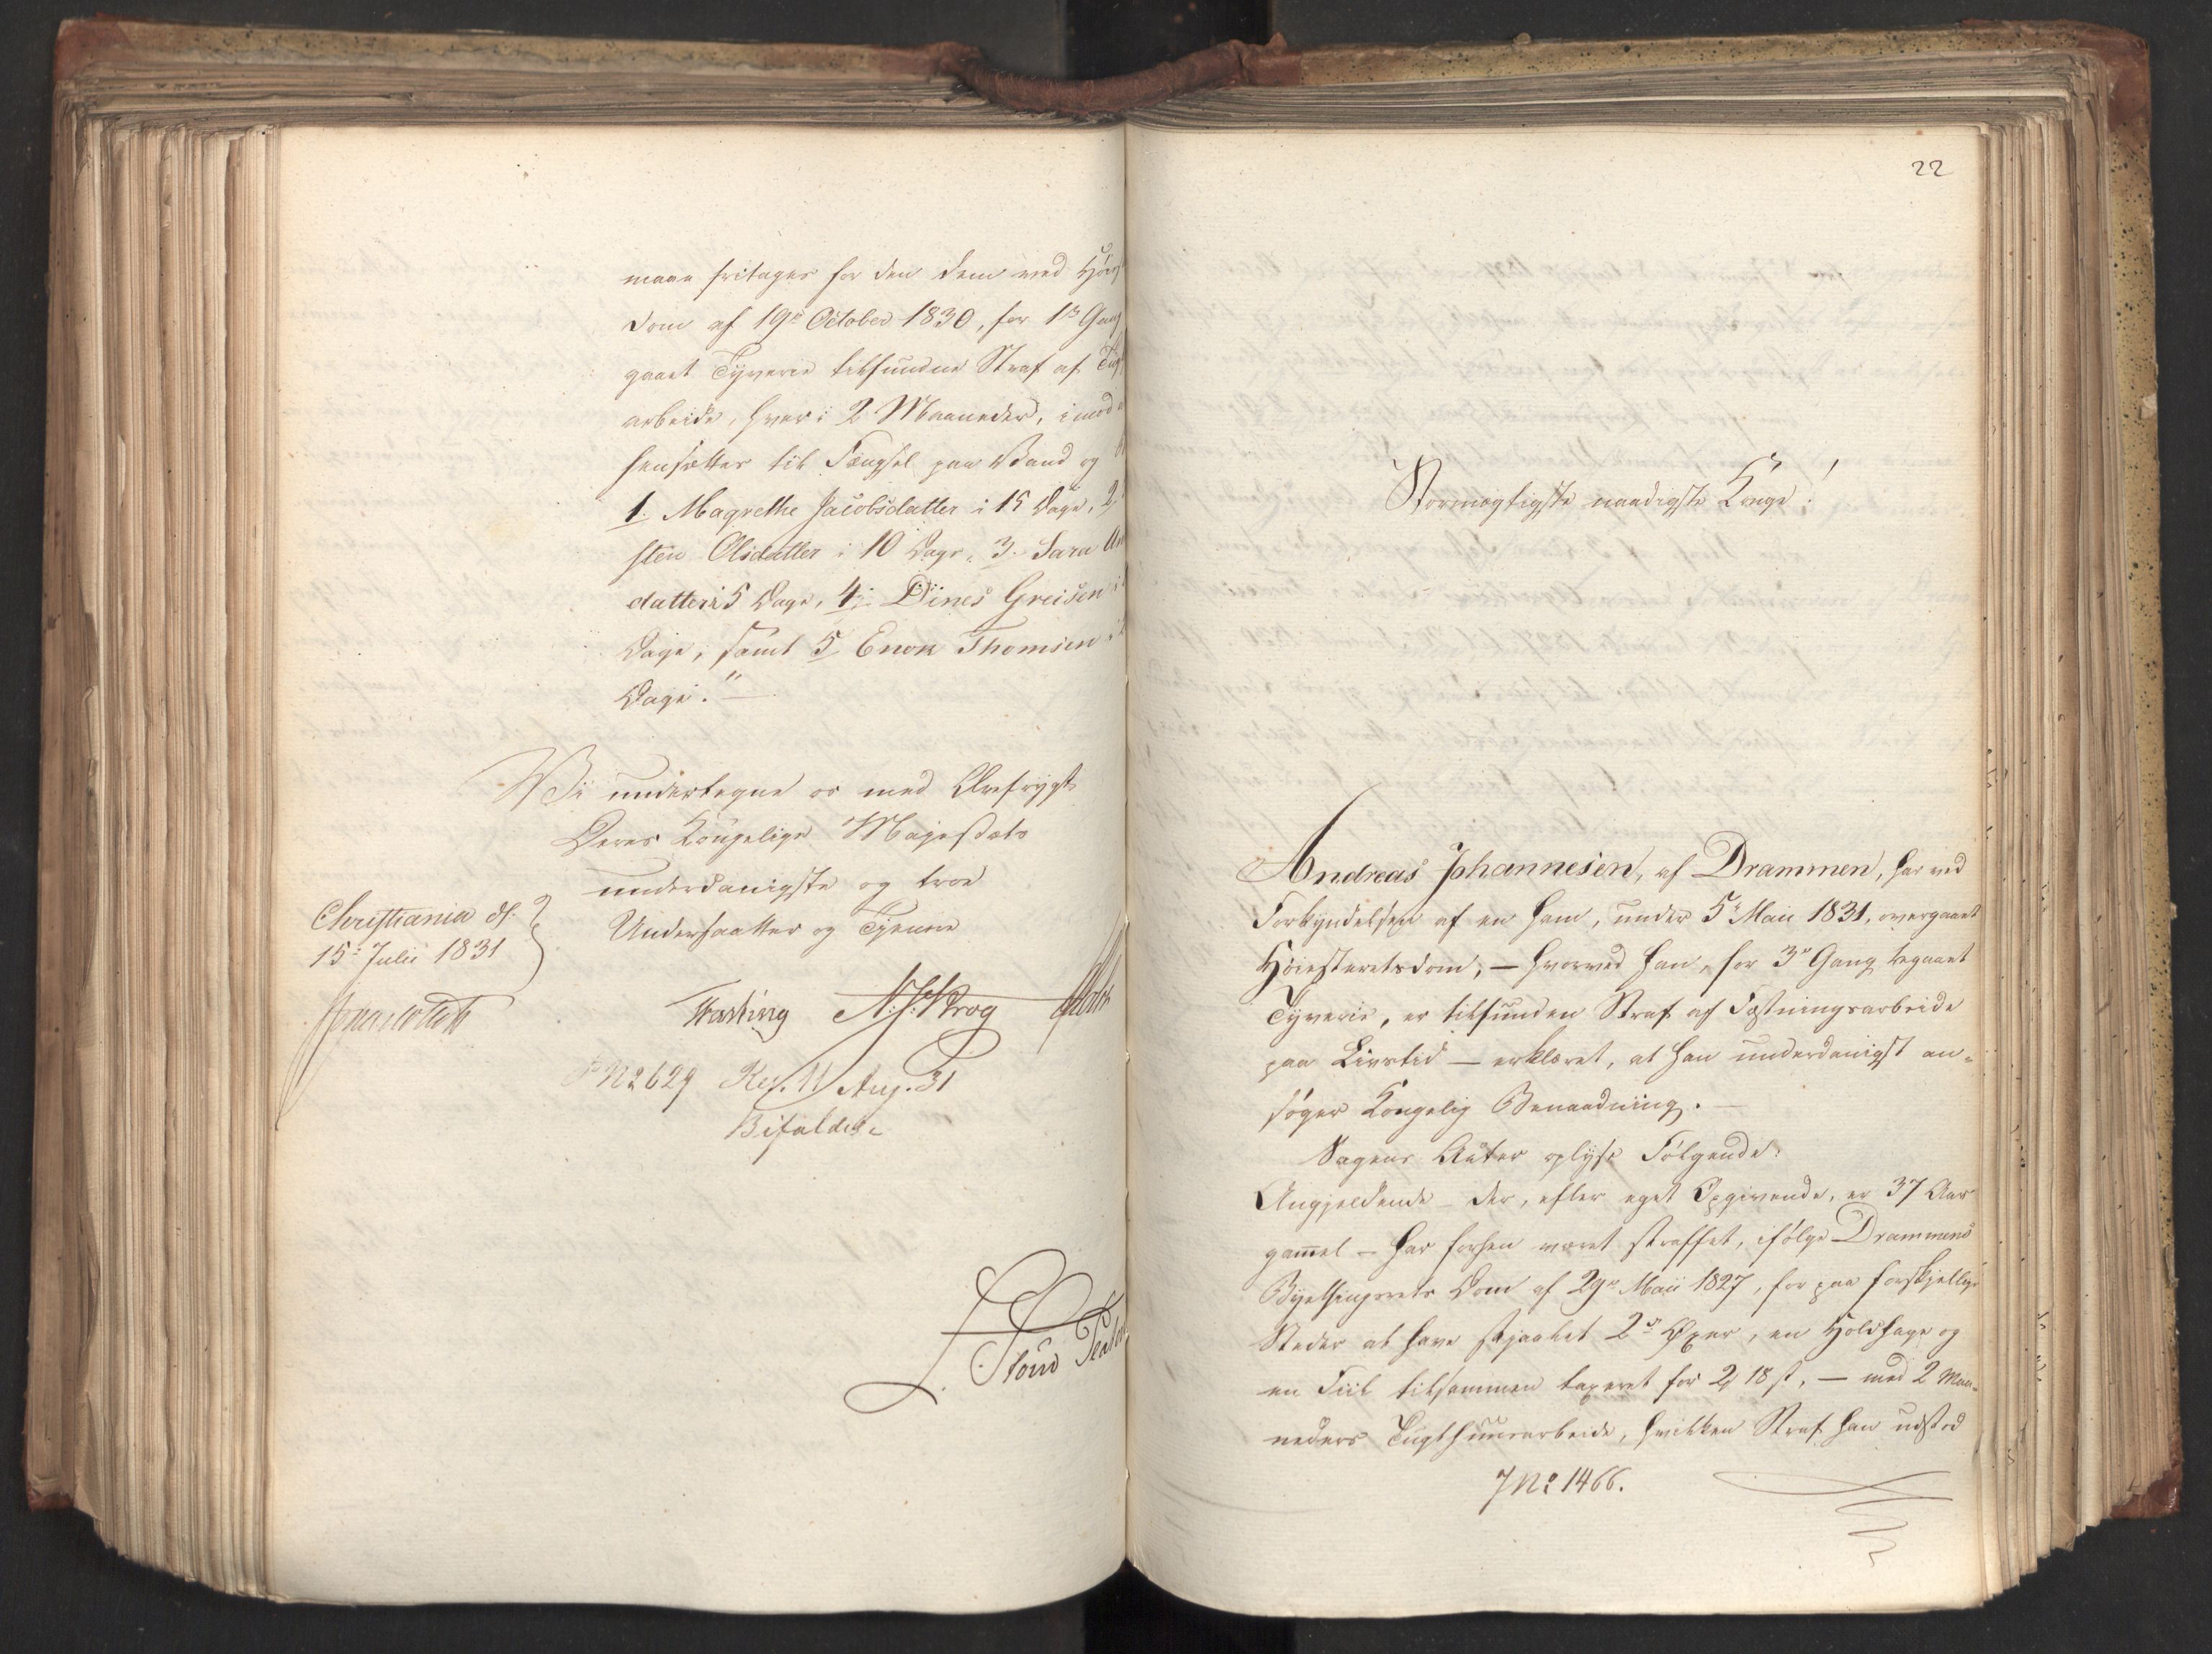 maae fritages for den dem ved Høies
dom af 19de October 1830, for 1ste Gang
gaaet Tyverie tilfundne Straf af Tugt
arbeide, hver i 2 Maaneder, imod a
hensættes til Fængsel paa Vand og
1. Magrethe Jacobsdatter i 15 Dage, 2
sten Olsdatter i 10 Dage, 3. Sara
datter i 5 Dage, 4. Dines Greisen i
Dage, samt 5 Enok Thomsen i
Dage."
Vi undertegne os med Ærefrygt
Deres Kongelige Majestæts
underdanigste og troe
Undersaatter og Tjenere
Christiania d.
15de Julii 1831
N. J. Krog
PN 2629 Res. 11 Aug. 31
Bifaldes.
22
Stormægtigste naadigste Konge!
Andreas Johannesen, af Drammen, har ved
Forkyndelsen af en ham, under 5te Maii 1831, overgaaet
Høiesteretsdom, — hvorved han, for 3die Gang begaaet
Tyverie, er tilfunden Straf af Fæstningsarbeide
paa Livstid — erklæret, at han underdanigst an-
søger Kongelig Benaadning. —
Sagens Acter oplyse Følgende:
Angjeldende — der, efter eget Opgivende, er 37 Aar
gam̄el — har forhen været straffet, ifølge Drammens
Byethingsrets Dom af 29de Maii 1827, for paa forskjellige
Steder at have stjaalet 2de Øxer, en Holdhage og
en Fiil tilsammen taxeret for 2 18 s, — med 2 Maa-
neders Tugthuusarbeide, hvilken Straf han udstod
J No 1466.